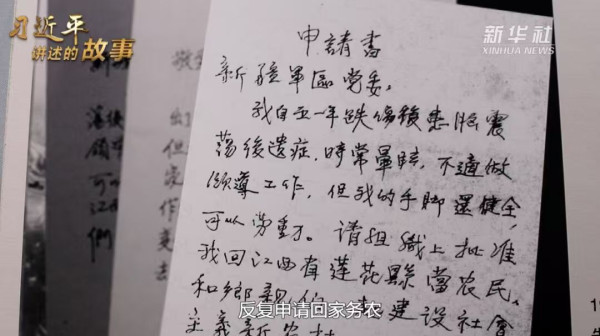 习近平
讲述的故事
新华社
XINHUA NEWS
申請書
新疆軍區党委。
我自五一年跌傷後患腦震
蕩後遺症，時常暈眩，不適做
領導工作，但我的手脚還健全，
可以勞動。請組織上批准
我回江西省蓮花縣當農民，
和鄉親們 建設社會
主義新农村
反复申请回家务农